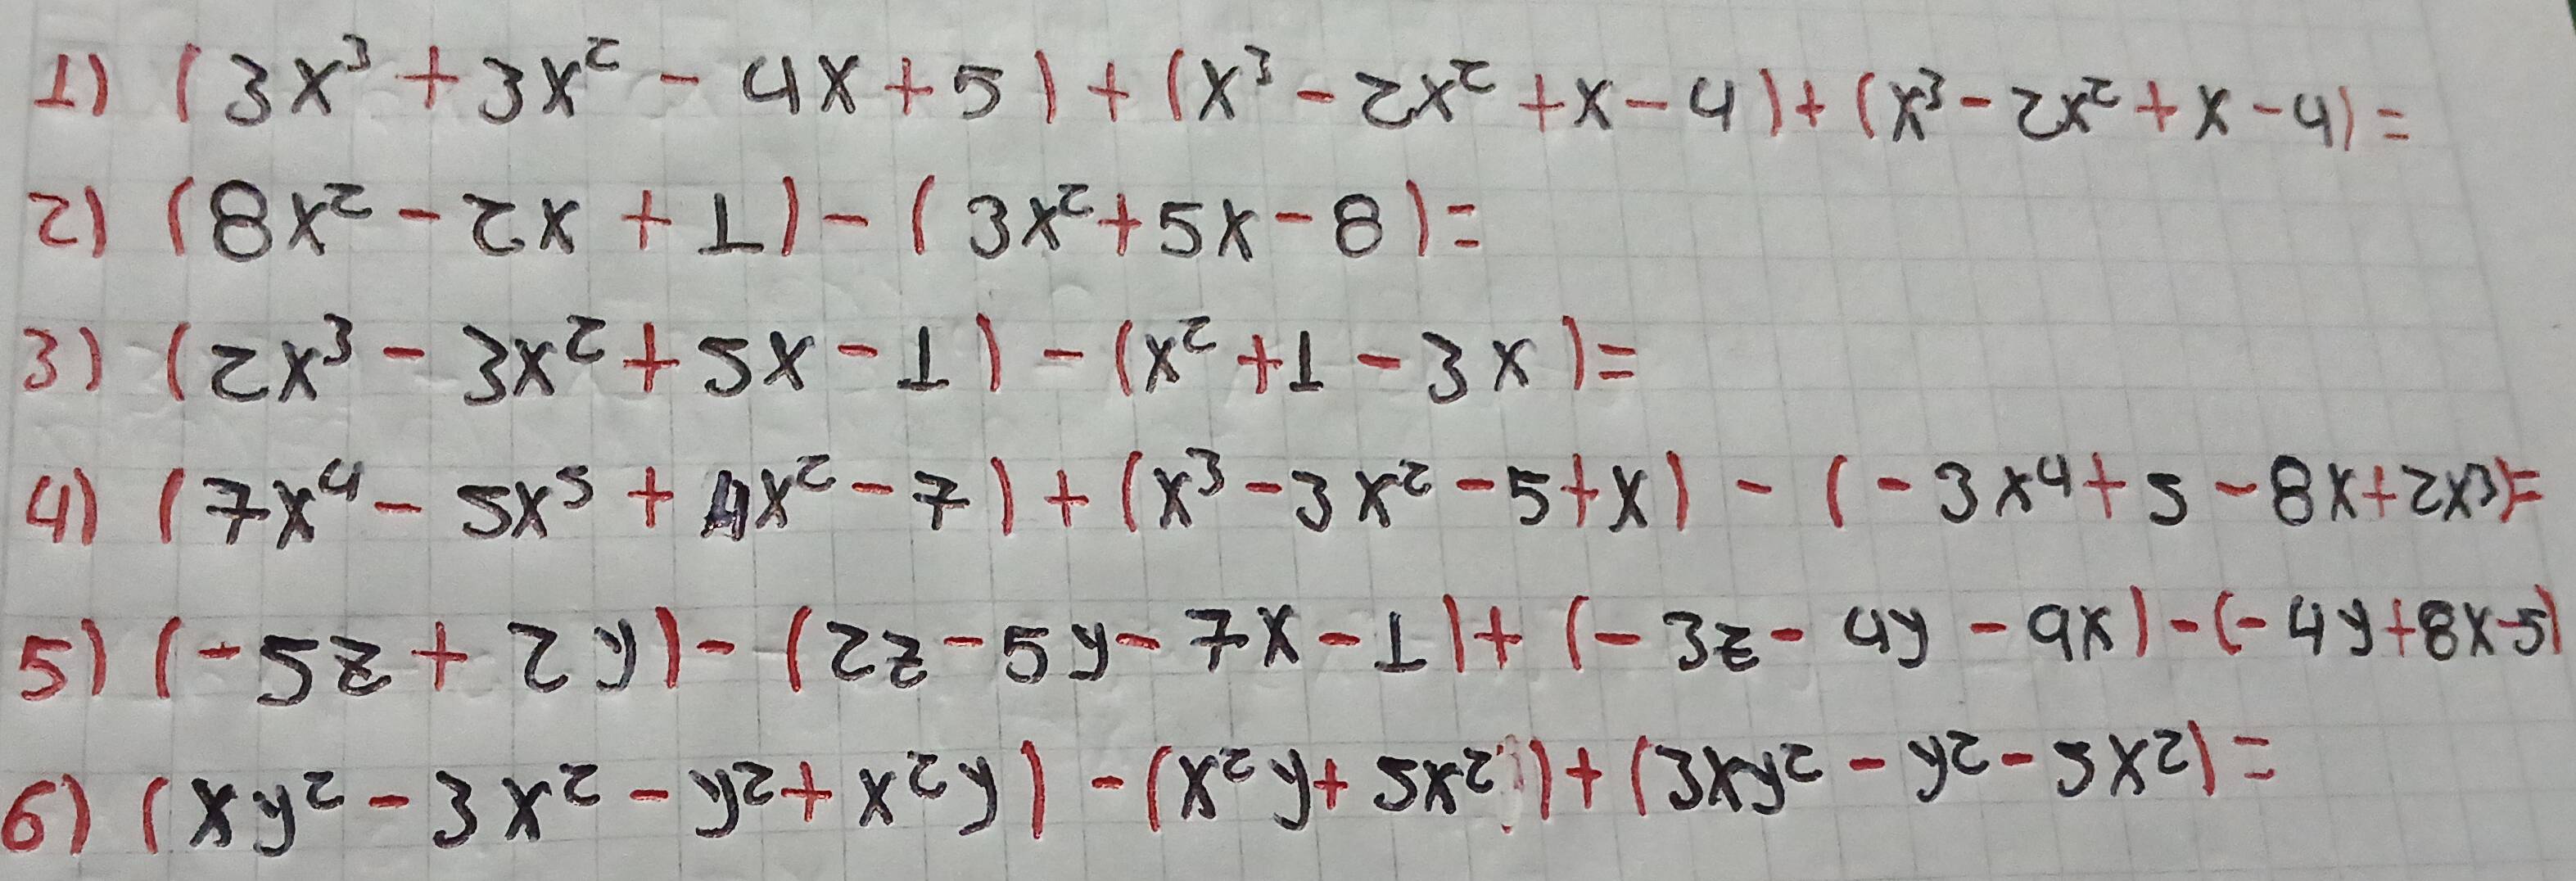 1) (3x³ + 3x² - 4x + 5) + (x³ - 2x² + x - 4) + (x³ - 2x² + x - 4) =
2) (8x² - 2x + 1) - (3x² + 5x - 8) =
3) (2x³ - 3x² + 5x - 1) - (x² + 1 - 3x) =
4) (7x⁴ - 5x⁵ + 4x² - 7) + (x³ - 3x² - 5 + x) - (-3x⁴ + 5 - 8x + 2x³) =
5) (-5z + 2y) - (2z - 5y - 7x - 1) + (-3z - 4y - 9x) - (-4y + 8x - 5)
6) (xy² - 3x² - y² + x²y) - (x²y + 5x²) + (3xy² - y² - 5x²) =